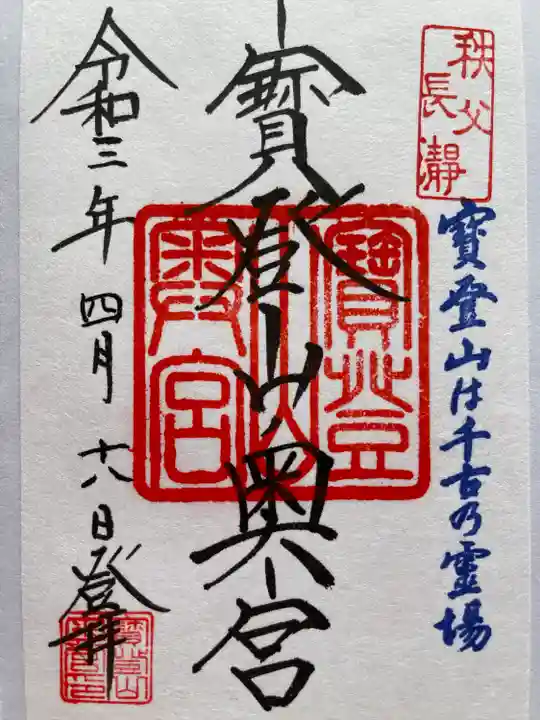 秩父
長瀞
寶登山は千古乃霊場
寶登山奥宮
寶登山奥宮
令和三年四月十八日登拝